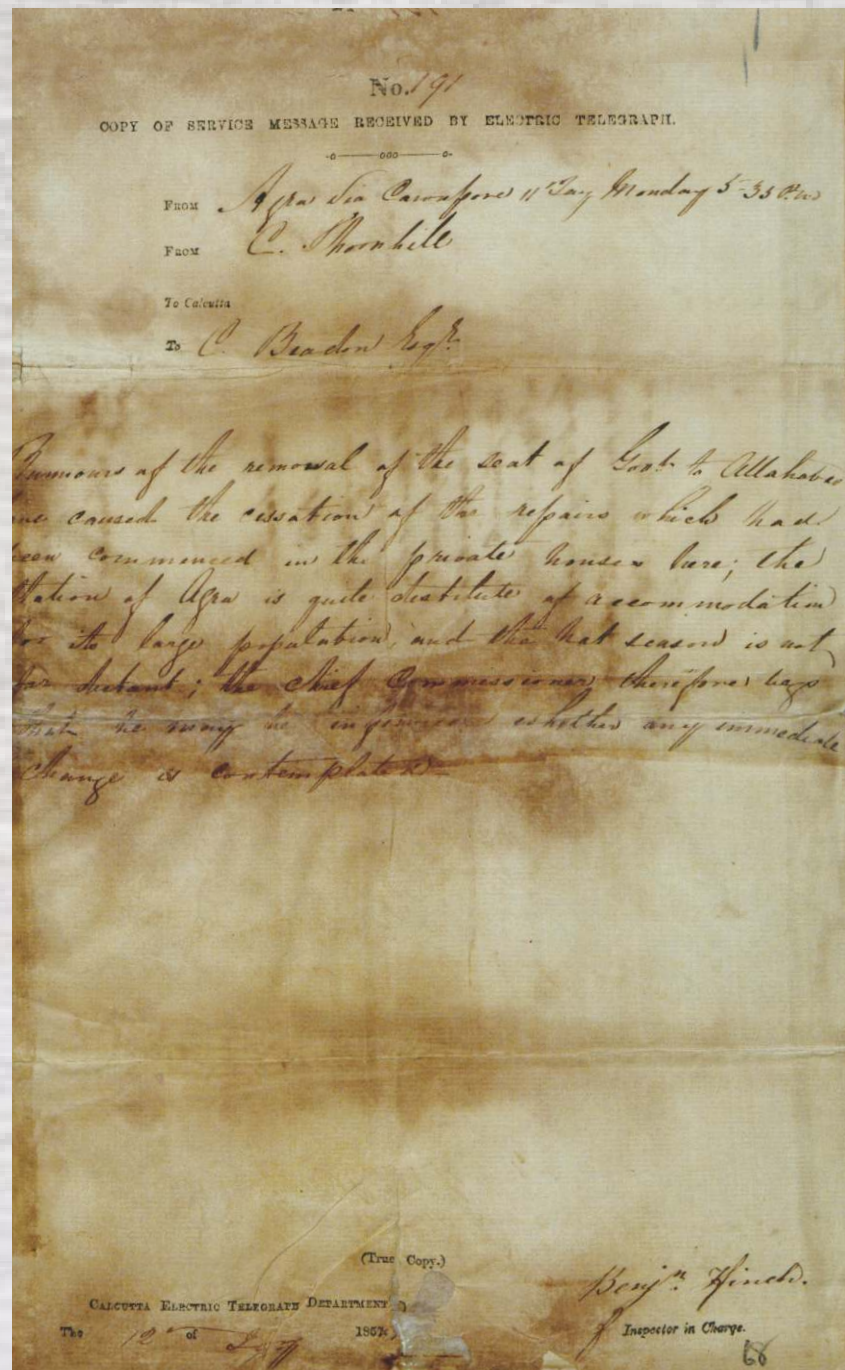 No. 191
COPY OF SERVICE MESSAGE RECEIVED BY ELECTRIC TELEGRAPH.
FROM Agra via Cawnpore 11th Monday 5-35 P.M
FROM C. Thornhill
To Calcutta
To C. Beadon Esqr.
Rumours of the removal of the seat of Govt. to Allahabad
caused the cessation of the repairs which had
been commenced in the private houses here; the
Station of Agra is quite destitute of accommodation
for its large population, and the hot season is not
far distant; the Chief Commissioner therefore begs
that he may be informed whether any immediate
change is contemplated
(True Copy.)
Benjn. Hinch.
CALCUTTA ELECTRIC TELEGRAPH DEPARTMENT
The 12th of 185
Inspector in Charge.
68